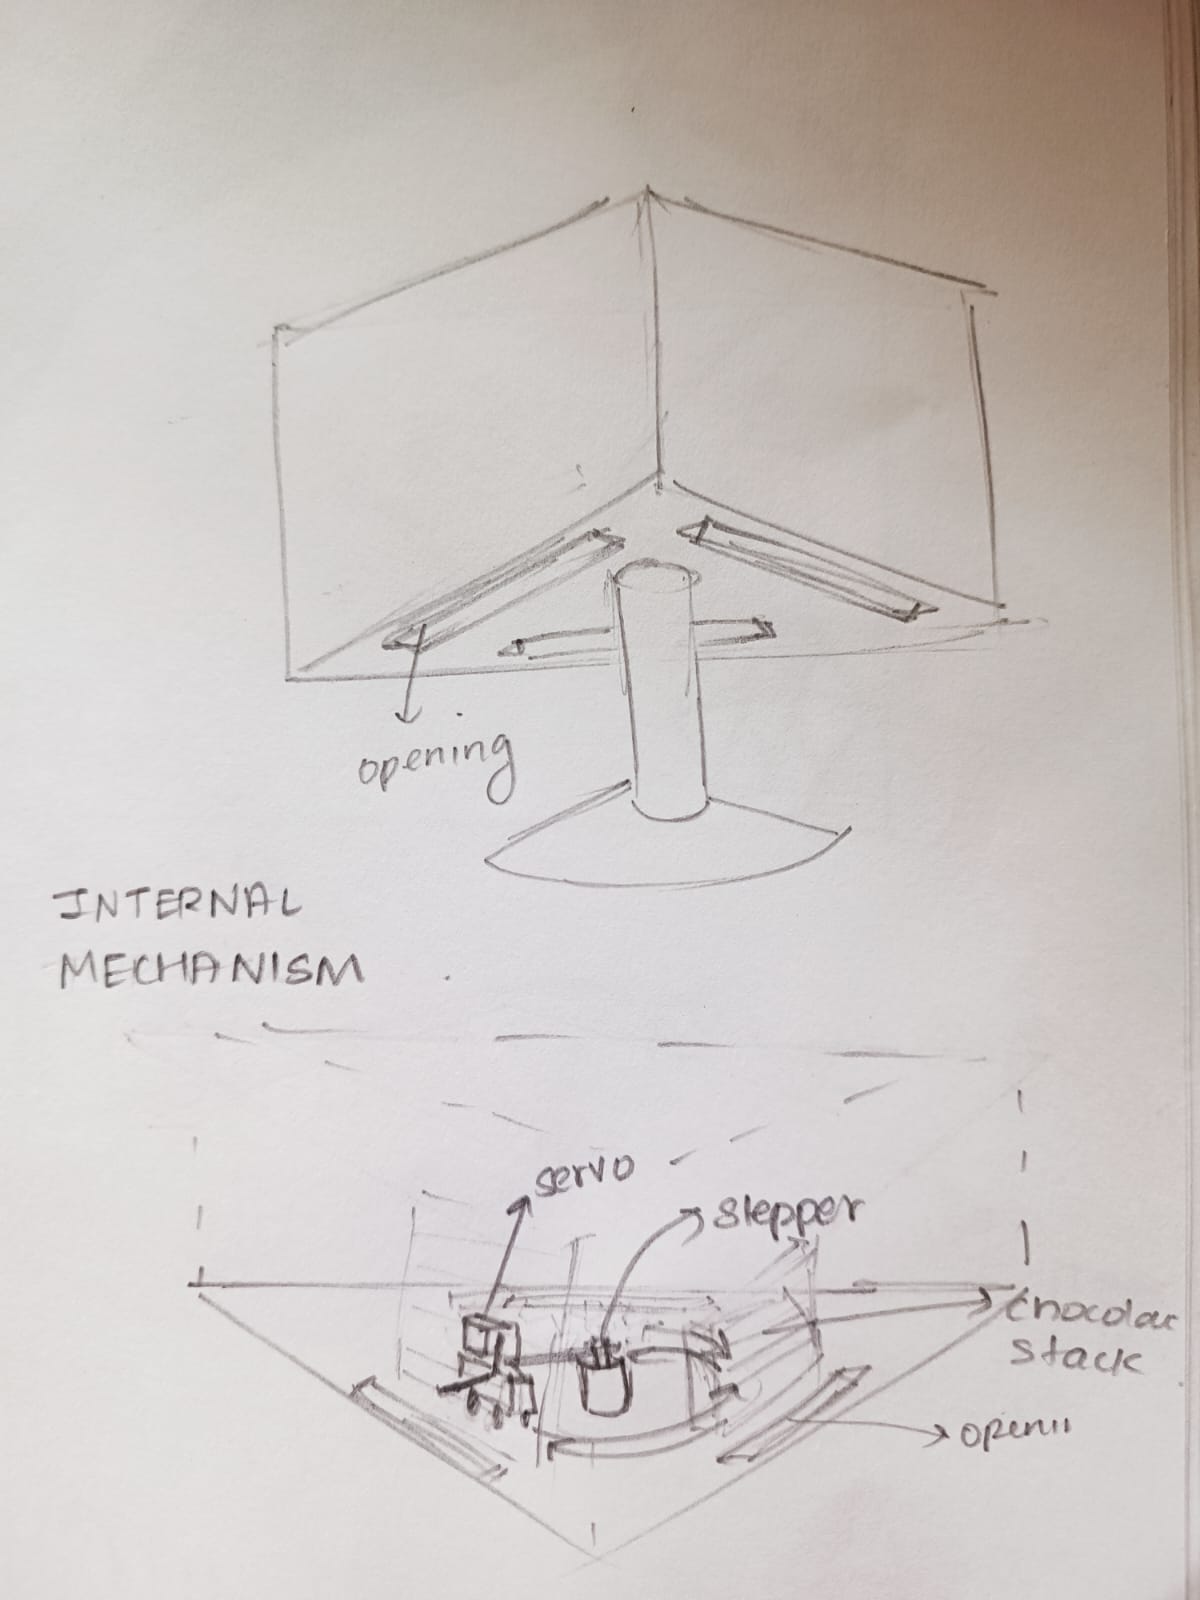 opening
INTERNAL
MECHANISM
servo
stepper
chocolac
stack
openii